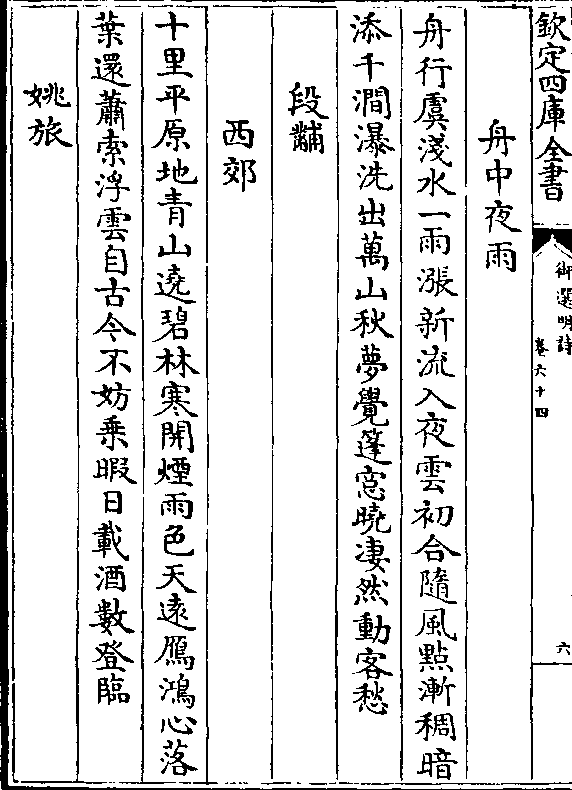 欽定四庫全書
御選明詩
卷六十四
六
舟中夜雨
舟行虞淺水一雨漲新流入夜雲初合隨風點漸稠暗
添千澗瀑洗出萬山秋夢覺篷窓曉凄然動客愁
段黼
西郊
十里平原地青山遶碧林寒開煙雨色天遠鴈鴻心落
葉還蕭索浮雲自古今不妨乗暇日載酒數登臨
姚旅